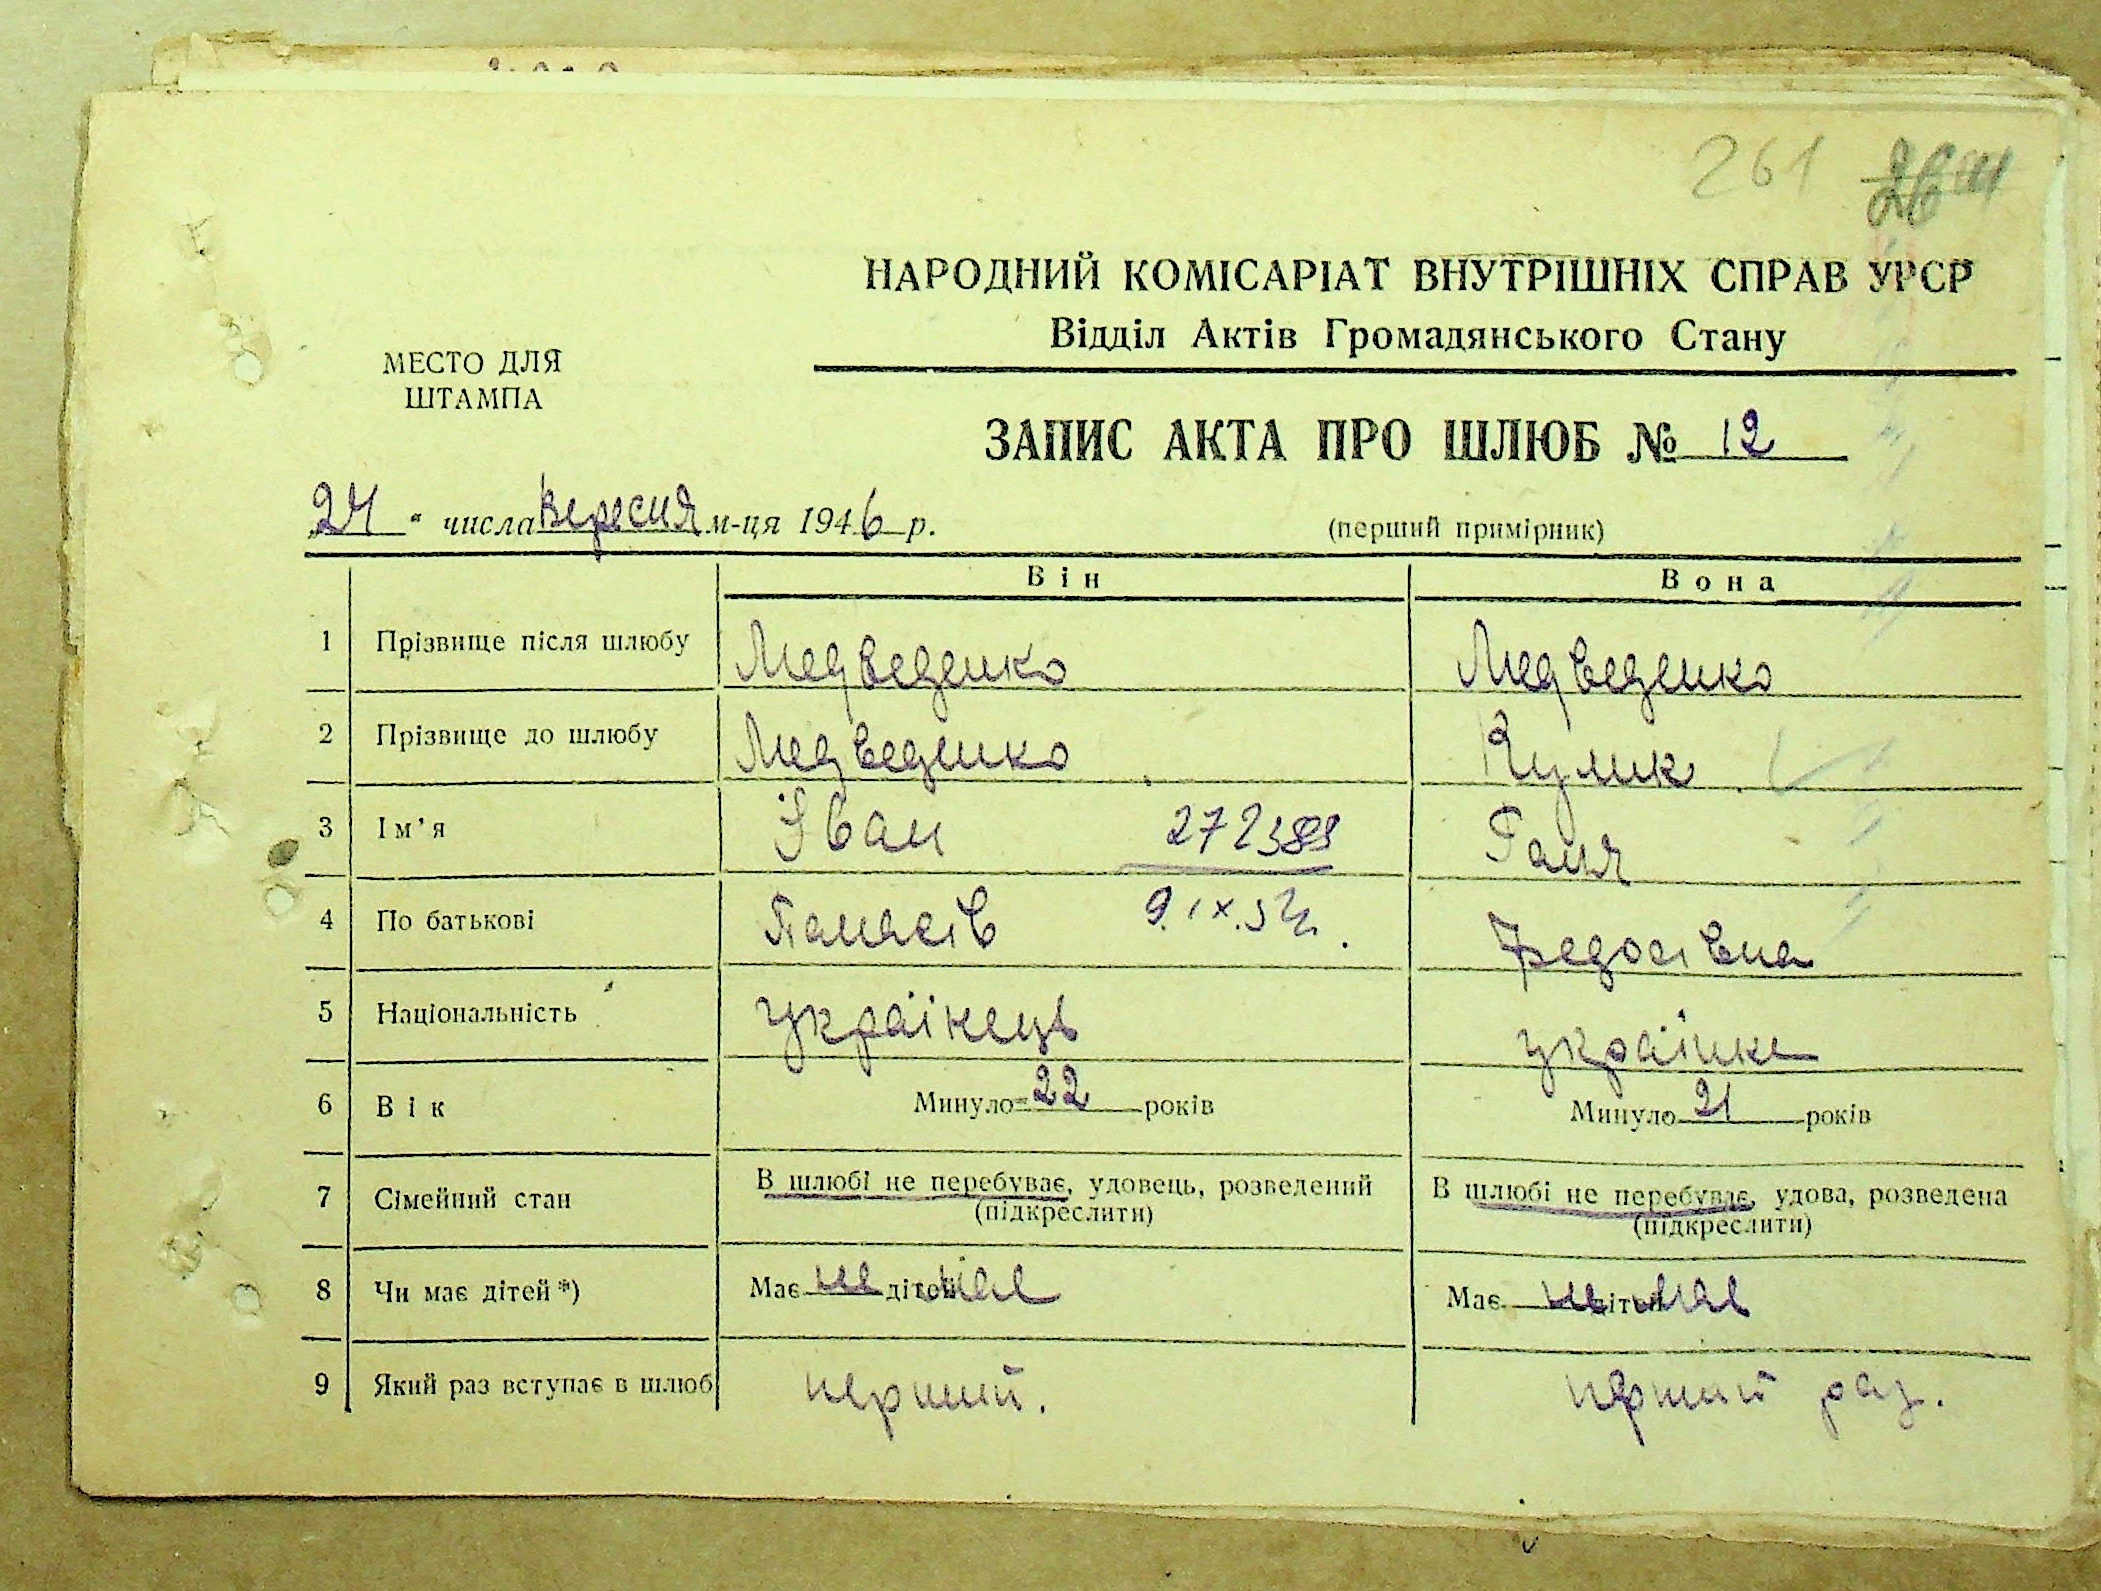 261
НАРОДНИЙ КОМІСАРІАТ ВНУТРІШНІХ СПРАВ УРСР
Відділ Актів Громадянського Стану
МЕСТО ДЛЯ
ШТАМПА
ЗАПИС АКТА ПРО ШЛЮБ № 12
„24" числа вересня м-ця 1946 р.
(перший примірник)
Він Вона
1 Прізвище після шлюбу Медведенко Медведенко
2 Прізвище до шлюбу Медведенко Кулик
3 Ім'я Іван 272389 Ганя
4 По батькові Панасів 9.IX.54р. Федосівна
5 Національність українець українка
6 Вік Минуло 22 років Минуло 21 років
7 Сімейний стан В шлюбі не перебуває, удовець, розведений В шлюбі не перебуває, удова, розведена
(підкреслити) (підкреслити)
8 Чи має дітей*) Має не має дітей Має не має дітей
9 Який раз вступає в шлюб перший. перший раз.